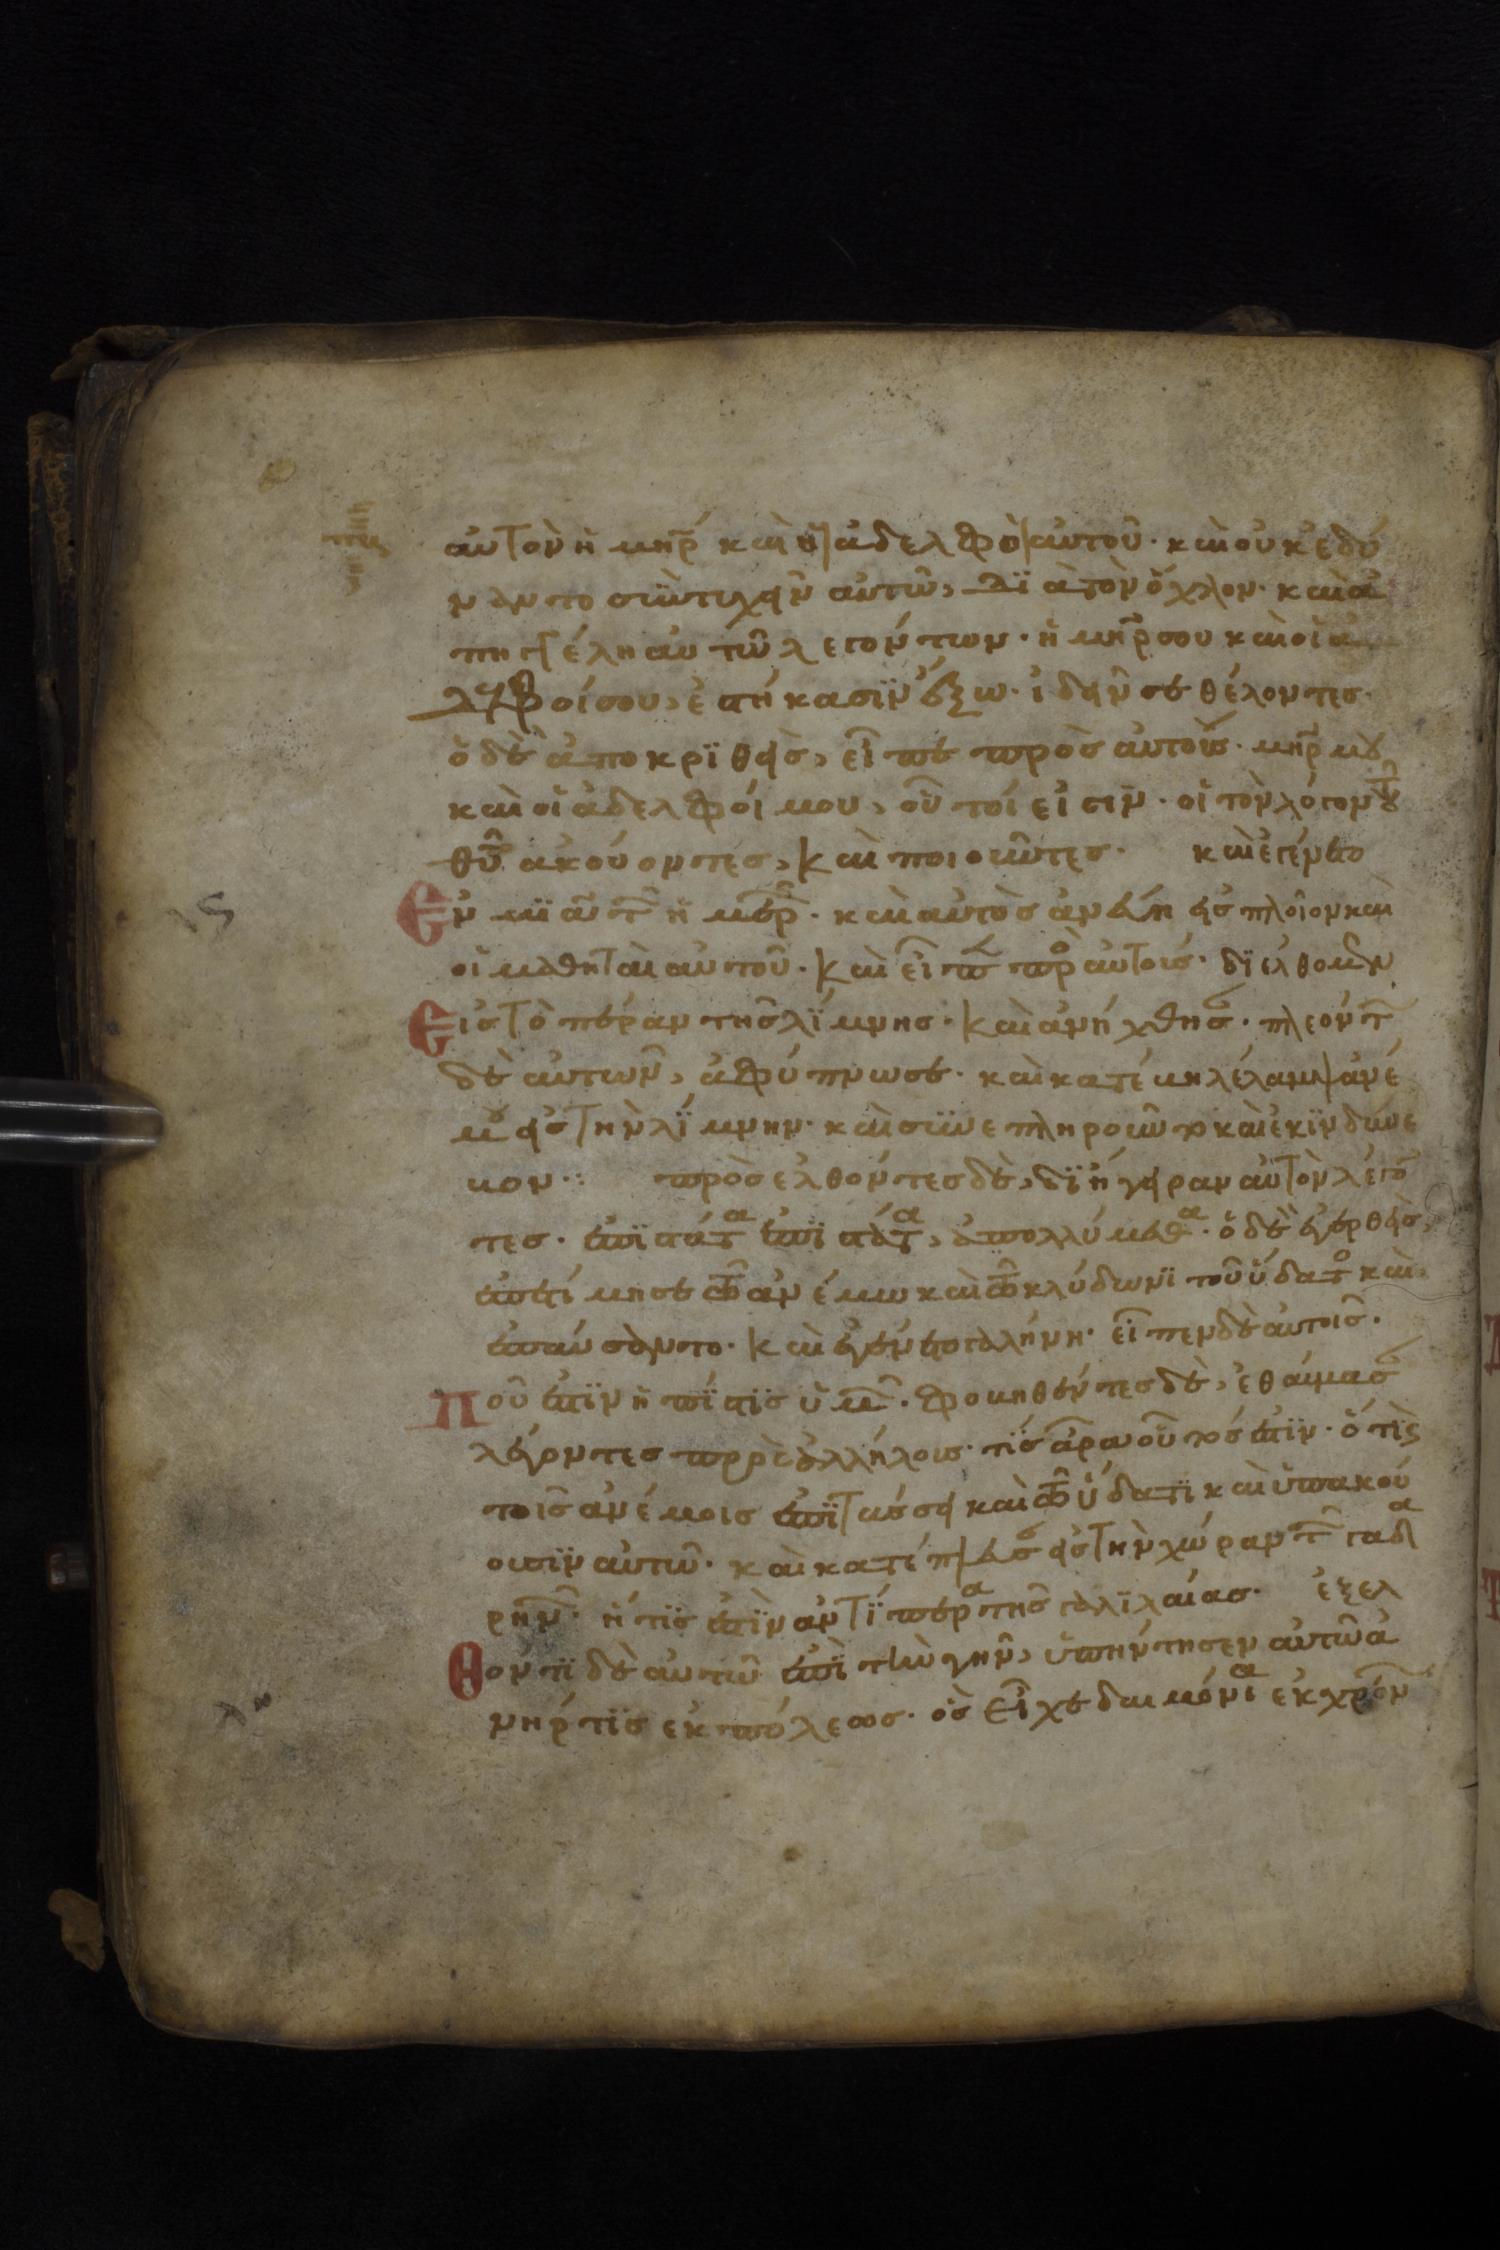 αὐτὸν ἡ μηρ́ καὶ οἱ ἀδελφοὶ αὐτοῦ· καὶ οὐκ ἐδύ
ναντο συντυχεῖν αὐτῶ, διὰ τὸν ὄχλον· καὶ ἀ
πηγγέλη αὐτῶ λεγόντων· ἡ μηρ σου καὶ οἱ ἀ
δελφοί σου, ἑστήκασιν ἔξω· ἰδεῖν σε θέλοντες·
ὁ δὲ ἀποκριθεὶς, εἶπε πρὸς αὐτούς· μηρ μου
καὶ οἱ ἀδελφοί μου, οὗτοί εἰσιν· οἱ τὸν λόγον τοῦ
θῦ ἀκούοντες, καὶ ποιοῦντες· καὶ ἐγένετο
Ἐν μιᾶ τῶν ἡμερῶν· καὶ αὐτὸς ἀνέβη εἰς πλοῖον καὶ
οἱ μαθηταὶ αὐτοῦ· καὶ εἶπε πρὸς αὐτούς· διέλθομεν
Εἰς τὸ πέραν τῆς λίμνης· καὶ ἀνήχθησαν· πλεόντων
δὲ αὐτῶν, ἀφύπνωσε· καὶ κατέβη λέλαμψ ἀνέ
μου εἰς τὴν λίμνην· καὶ συνεπληροῦντο καὶ ἐκινδύνε
υον·: πρὸσελθόντες δὲ, διήγειραν αὐτὸν λέγον
τες· ἐπιστάτα ἐπιστάτα, ἀπολλύμεθα· ὁ δὲ ἐγερθεὶς,
ἐπετίμησε τῶ ἀνέμω καὶ τῶ κλύδωνι τοῦ ὕδατος καὶ
ἐπαύσαντο· καὶ ἐγένετο γαλήνη· εἶπεν δὲ αὐτοῖς·
Ποῦ ἐστιν ἡ πίστις ὑμῶν· φοβηθέντες δὲ, ἐθαύμασαν
λέγοντες πρὸς ἀλλήλους· τίς ἆρα οὗτός ἐστιν· ὅτι καὶ
τοῖς ἀνέμοις ἐπιτάσσει καὶ τῶ ὕδατι καὶ ὑπακού
ουσιν αὐτῶ· καὶ κατέπλευσαν εἰς τὴν χώραν τῶν γαδα
ρηνῶν· ἥτις ἐστὶν ἀντίπερα τῆς γαλιλαίας· ἐξελ
Θόντι δὲ αὐτῶ ἐπὶ τὴν γῆν, ὑπήντησεν αὐτῶ ἀ
νήρ τις ἐκ πόλεως· ὃς εἶχε δαιμόνια ἐκ χρόνων